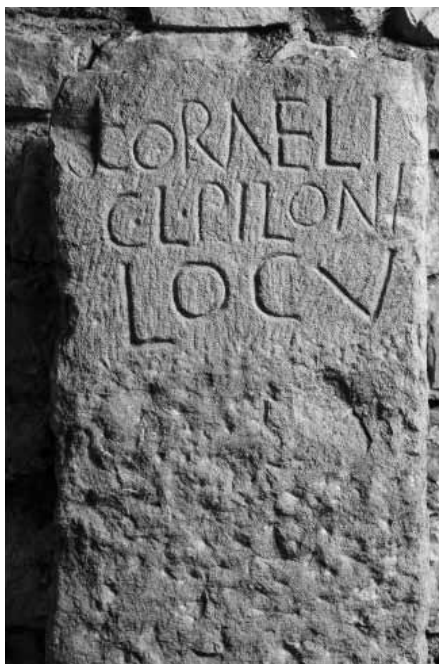 L CORNELI
C·L·PILONI
LOCV